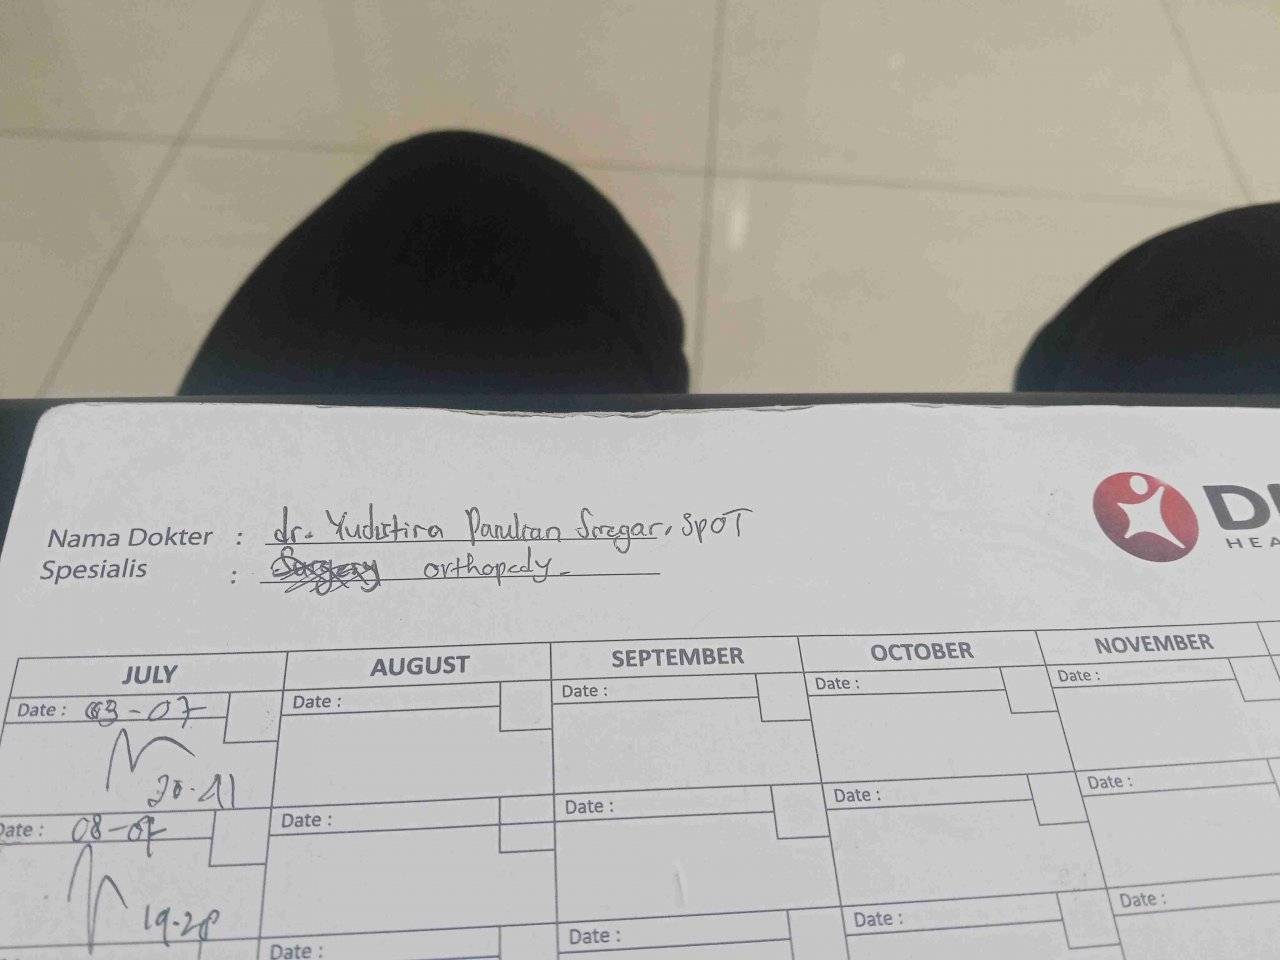 Nama Dokter : dr. Yudistira Parulian Siregar, SpOT
Spesialis : orthopedy
HEA
JULY AUGUST SEPTEMBER OCTOBER NOVEMBER
Date : 03-07 Date : Date : Date : Date :
20.41
Date : 08-07 Date : Date : Date : Date :
19.28
Date : Date : Date : Date :